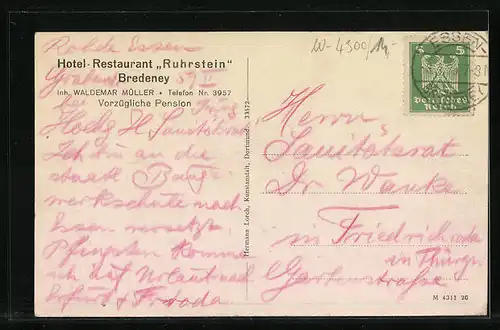 W-4500/14,-
Rohde Essen
Hotel-Restaurant „Ruhrstein"
Bredeney
Inh. WALDEMAR MÜLLER • Telefon Nr. 3957
Vorzügliche Pension
57 II
bei
H. Sanitätsrat
Ich bin an die
staatl. Baug
werkschule nach
Essen versetzt.
Pfingsten komme
ich auf Urlaub nach
Erfurt & Froda
Hermann Lorch, Kunstanstalt, Dortmund. 33572
ESSEN
5 5
Deutsches
Reich
Herrn
Sanitätsrat
Dr Wanke
in Friedrichroda
in Thürgn
Gartenstraße
M 4311 26